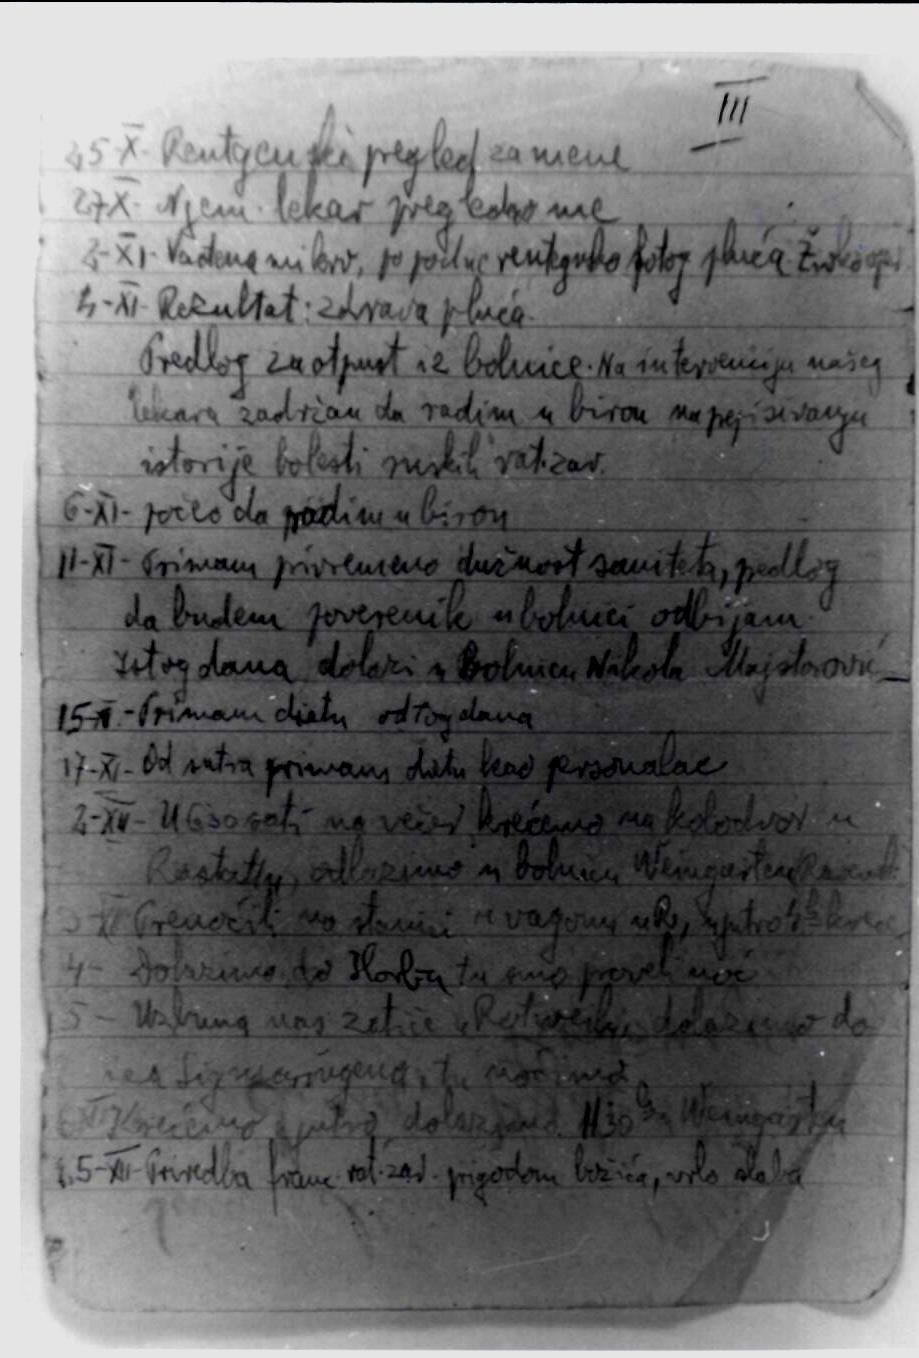 III
25-X- Rentgenski pregled za mene
27 X- Njem. lekar pregledao me
2-XI- Vađena mi krv, po podne rentgensko fotog pluća
4-XI- Rezultat: zdrava pluća.
Predlog za otpust iz bolnice. Na intervenciju našeg
lekara zadržan da radim u birou na
istorije bolesti ruskih rat. zar.
6-XI- počeo da radim u birou
11-XI- Primam privremeno dužnost saniteta, predlog
da budem poverenik u bolnici odbijam.
Istog dana dolazi u Bolnicu Nikola Majstorović
15-XI- Primam dietu od tog dana
17-XI- Od sutra primam dietu kao personalac
2-XII- U 630 sati na večer krećemo na kolodvor u
Rastattu, odlazimo u bolnicu Weingarten
3-XII Prenoćili na stanici u vagonu u R, ujutro
4- Dolazimo do Horba tu smo proveli noć
5- Uzbuna nas zatiče u dolazimo do
Sigmaringena, tu noćimo
6 XII Krećemo ujutro dolazimo 1130 u Weingarten
25-XII- Priredba franc. rat. zar. prigodom božića, vrlo slaba